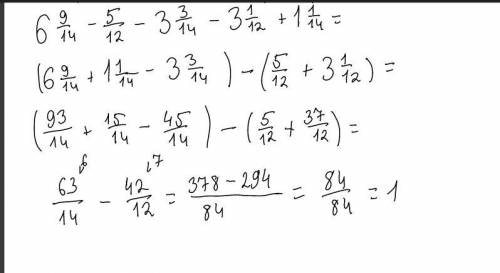 6 9/14 - 5/12 - 3 3/14 - 3 1/12 + 1 1/14 =
(6 9/14 + 1 1/14 - 3 3/14) - (5/12 + 3 1/12) =
(93/14 + 15/14 - 45/14) - (5/12 + 37/12) =
63/14 ⁶ - 42/12 ⁷ = 378 - 294/84 = 84/84 = 1